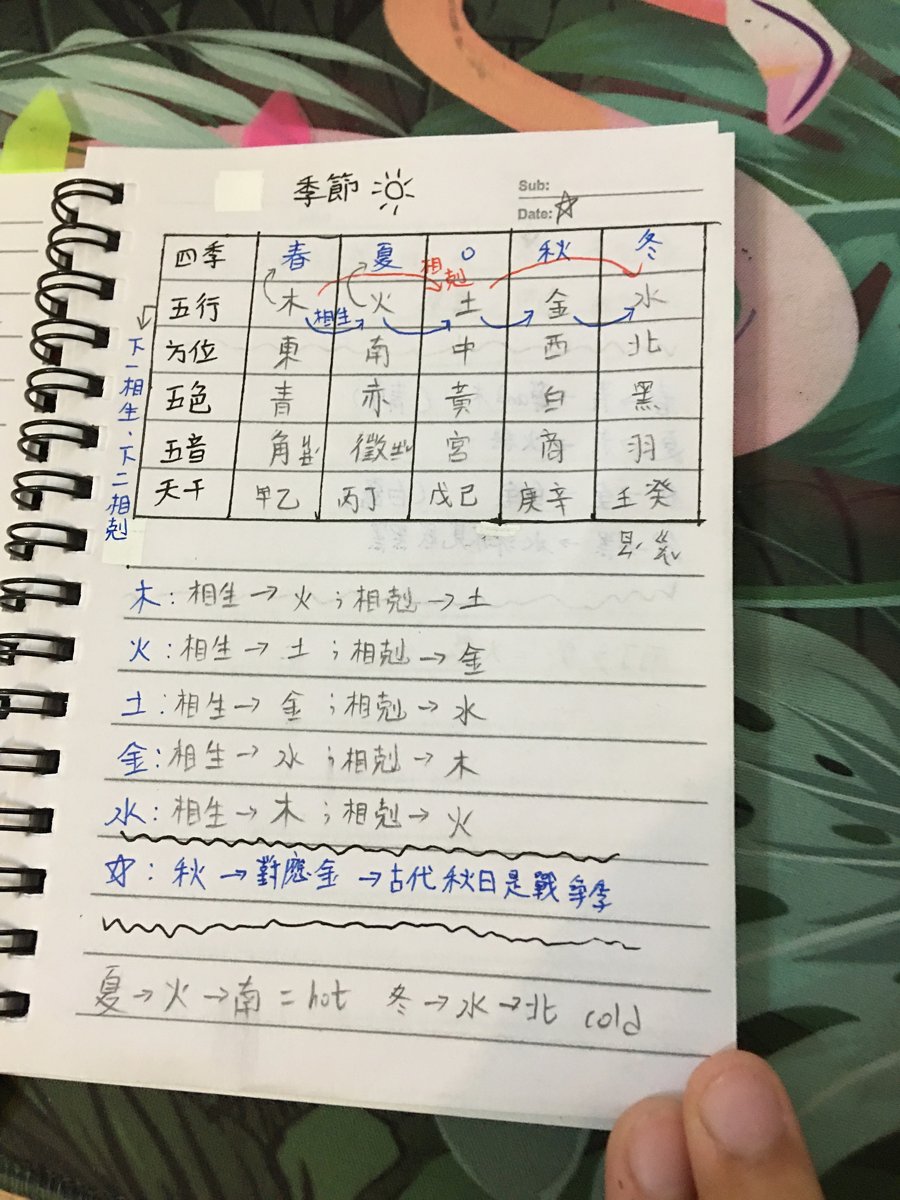 季節
Sub:
Date:
四季 春 夏 O 秋 冬
相剋
五行 木 火 土 金 水
相生
方位 東 南 中 西 北
五色 青 赤 黃 白 黑
五音 角 徵 宮 商 羽
天干 甲乙 丙丁 戊己 庚辛 壬癸
下一相生、下二相剋
木:相生→火;相剋→土
火:相生→土;相剋→金
土:相生→金;相剋→水
金:相生→水;相剋→木
水:相生→木;相剋→火
☆:秋→對應金→古代秋日是戰爭季
夏→火→南=hot 冬→水→北 cold